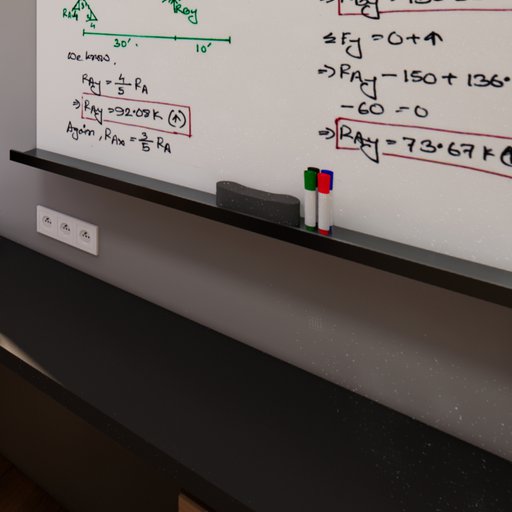 RBy
30'
10'
We know,
RAy = 4/5 RA
⇒ RAy = 92.08 K (↑)
Again, RAx = 3/5 RA
ΣFy = 0 + ↑
⇒ RAy − 150 + 136.
−60 = 0
⇒ RAy = 73.67 K (